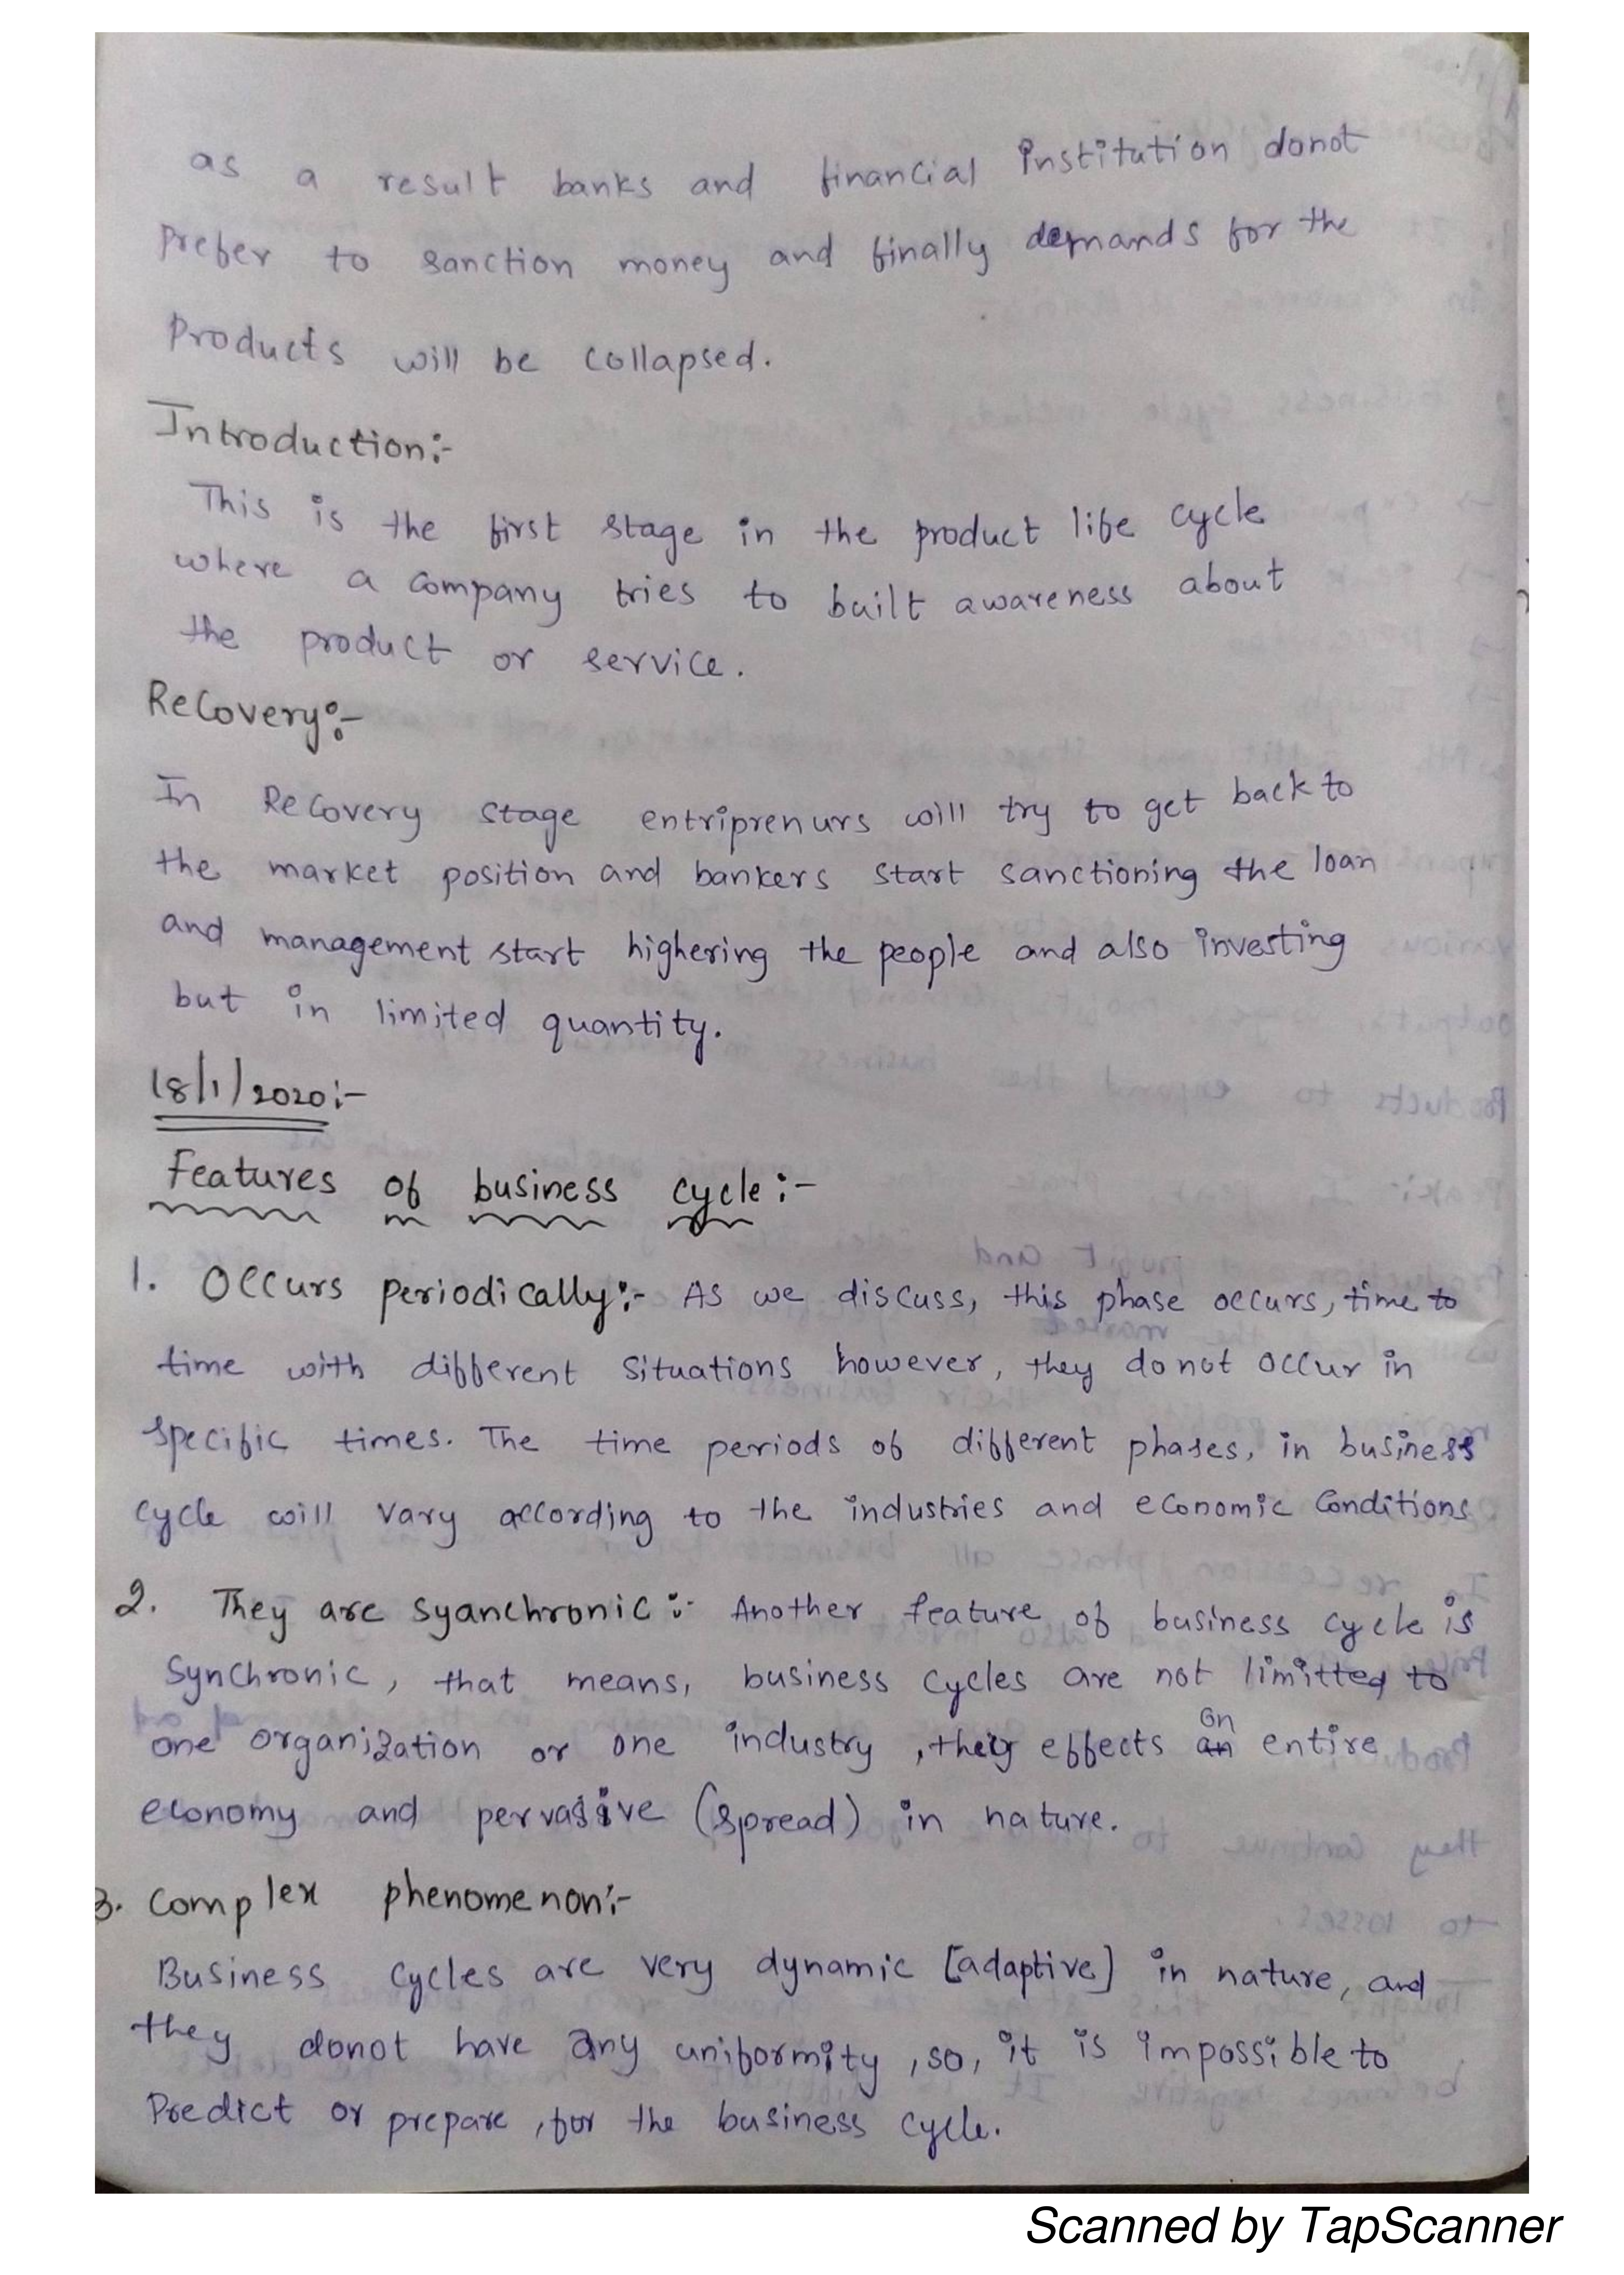 as a result banks and financial institution donot
prefer to sanction money and finally demands for the
products will be collapsed.
Introduction:-
This is the first stage in the product life cycle
where a company tries to built awareness about
the product or service.
Recovery:-
In Recovery stage entriprenurs will try to get back to
the market position and bankers start sanctioning the loan
and management start highering the people and also investing
but in limited quantity.
18/1/2020:-
Features of business cycle:-
1. Occurs periodically:- As we discuss, this phase occurs, time to
time with different situations however, they do not occur in
specific times. The time periods of different phases, in business
cycle will vary according to the industries and economic conditions
2. They are syanchronic:- Another feature of business cycle is
synchronic, that means, business cycles are not limitted to
one organization or one industry, they effects on entire
economy and pervasive (spread) in nature.
3. complex phenomenon:-
Business cycles are very dynamic [adaptive] in nature, and
they donot have any uniformity, so, it is impossible to
predict or prepare, for the business cycle.
Scanned by TapScanner